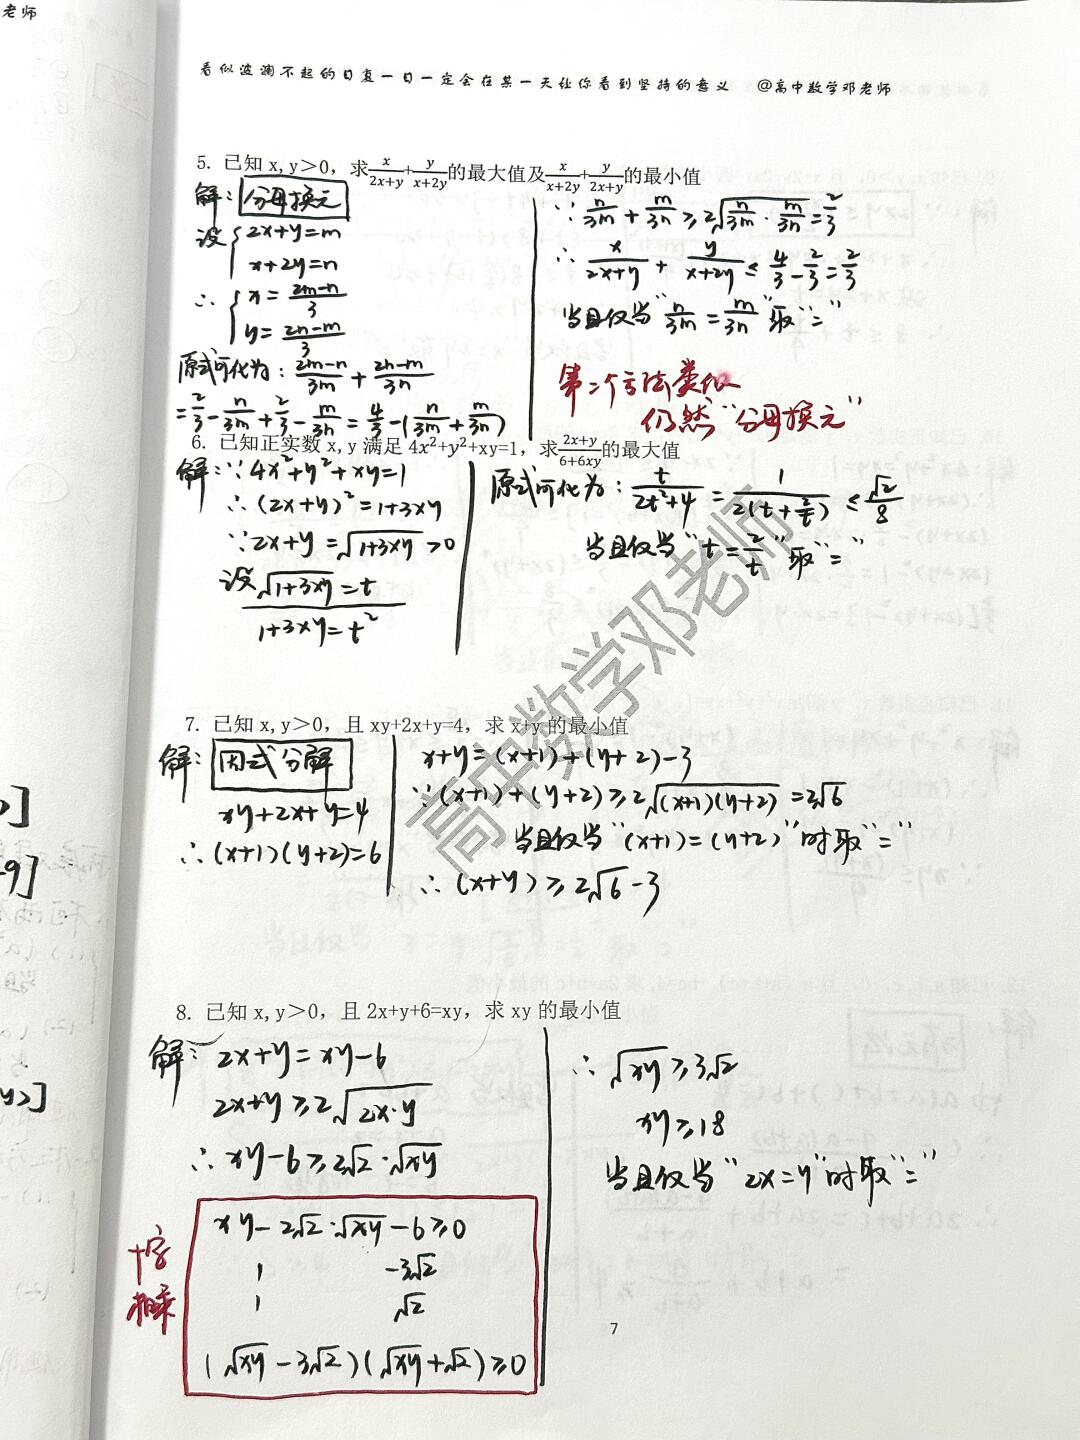 老师
看似波澜不起的日复一日一定会在某一天让你看到坚持的意义 @高中数学邓老师
5. 已知 x,y＞0，求x/(2x+y)+y/(x+2y)的最大值及x/(x+2y)+y/(2x+y)的最小值
解：分母换元
设{2x+y=m
x+2y=n
∴{x=(2m-n)/3
y=(2n-m)/3
原式可化为：(2m-n)/3m+(2n-m)/3n
=2/3-n/3m+2/3-m/3n=4/3-(n/3m+m/3n)
∵n/3m+m/3n≥2√(n/3m·m/3n)=2/3
∴x/(2x+y)+y/(x+2y)≤4/3-2/3=2/3
当且仅当“n/3m=m/3n”取“=”
第二个方法类似
仍然“分母换元”
6. 已知正实数 x,y 满足 4x²+y²+xy=1，求(2x+y)/(6+6xy)的最大值
解：∵4x²+y²+xy=1
∴(2x+y)²=1+3xy
∵2x+y=√(1+3xy)>0
设√(1+3xy)=t
1+3xy=t²
原式可化为：t/(2t²+4)=1/(2(t+2/t))≤√2/8
当且仅当“t=2/t”取“=”
7. 已知 x,y＞0，且 xy+2x+y=4，求 x+y 的最小值
解：因式分解
xy+2x+y=4
∴(x+1)(y+2)=6
x+y=(x+1)+(y+2)-3
∵(x+1)+(y+2)≥2√((x+1)(y+2))=2√6
当且仅当“(x+1)=(y+2)”时取“=”
∴(x+y)≥2√6-3
8. 已知 x,y＞0，且 2x+y+6=xy，求 xy 的最小值
解：2x+y=xy-6
2x+y≥2√(2x·y)
∴xy-6≥2√2·√xy
十字
相乘
xy-2√2·√xy-6≥0
1 -3√2
1 √2
(√xy-3√2)(√xy+√2)≥0
∴√xy≥3√2
xy≥18
当且仅当“2x=y”时取“=”
高中数学邓老师
7